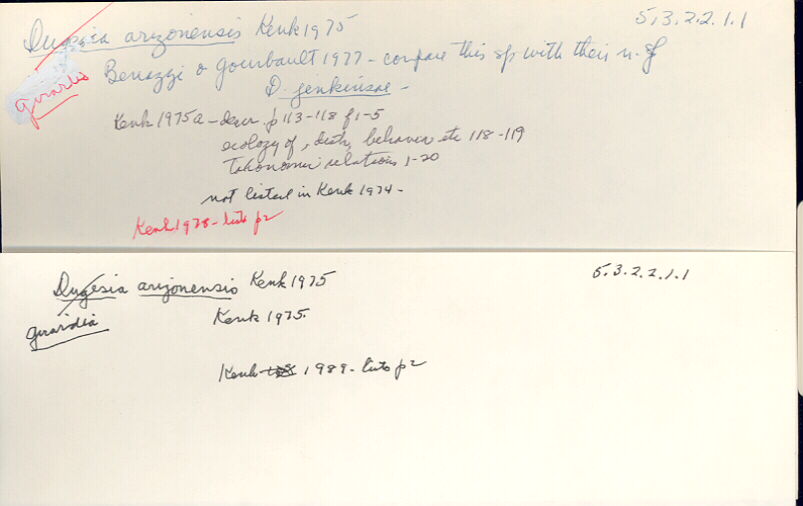 Dugesia arizonensis Kenk 1975
5.3.2.2.1.1
Girardia
Benazzi & Gourbault 1977 - compare this sp with their n. sp
D. jenkinsae -
Kenk 1975a - descr. p 113-118 f 1-5
ecology of, distr, behavior etc 118-119
Taxonomic relations 1-20
not listed in Kenk 1974 -
Kenk 1978 - lists p 2
Dugesia arizonensis Kenk 1975
5.3.2.2.1.1
Girardia
Kenk 1975.
Kenk 1989 - lists p 2